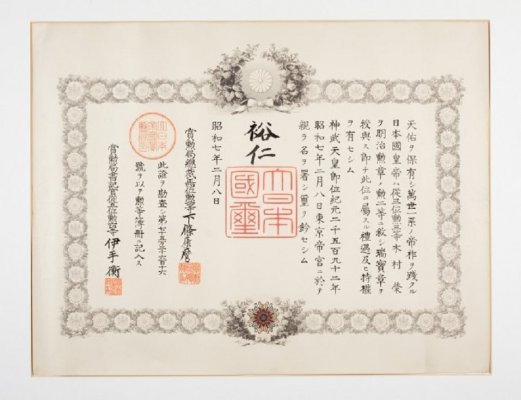 天佑ヲ保有シ萬世一系ノ帝祚ヲ踐タル
日本國皇帝ハ從三位勲三等木村榮
ヲ明治勲章ノ勲二等ニ敘シ瑞寶章ヲ
授與ス即チ此位ニ屬スル禮遇及ヒ特權
ヲ有セシム
神武天皇即位紀元二千五百九十二年
昭和七年二月八日東京帝宮ニ於テ
親ラ名ヲ署シ璽ヲ鈐セシム
裕仁
大日本國璽
昭和七年二月八日
賞勲局總裁 下條康麿
此證ヲ勘査シ第
號ヲ以テ勲等簿册ニ記入ス
賞勲局書記官從五位勲四等 伊手衡